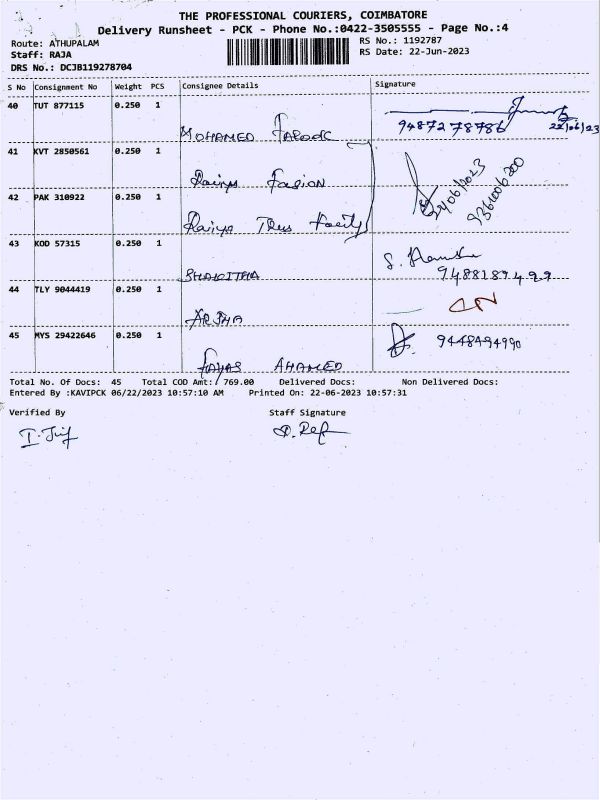 THE PROFESSIONAL COURIERS, COIMBATORE
Delivery Runsheet - PCK - Phone No.:0422-3505555 - Page No.:4
Route: ATHUPALAM
RS No.: 1192787
Staff: RAJA
RS Date: 22-Jun-2023
DRS No.: DCJB119278704
S No Consignment No Weight PCS Consignee Details Signature
40 TUT 877115 0.250 1
MOHAMED FAROOK 9487278786 22/06/23
41 KVT 2850561 0.250 1
Fasion 22/06/2023
42 PAK 310922 0.250 1 9361006200
43 KOD 57315 0.250 1
SHAKITHA 9488189499
44 TLY 9044419 0.250 1
ARSHA
45 MYS 29422646 0.250 1 9448494990
FAYAS AHAMED
Total No. Of Docs: 45 Total COD Amt: 769.00 Delivered Docs: Non Delivered Docs:
Entered By :KAVIPCK 06/22/2023 10:57:10 AM Printed On: 22-06-2023 10:57:31
Verified By Staff Signature